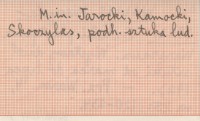 M.in. Jarocki, Kamocki,
Skoczylas, podh. sztuka lud.